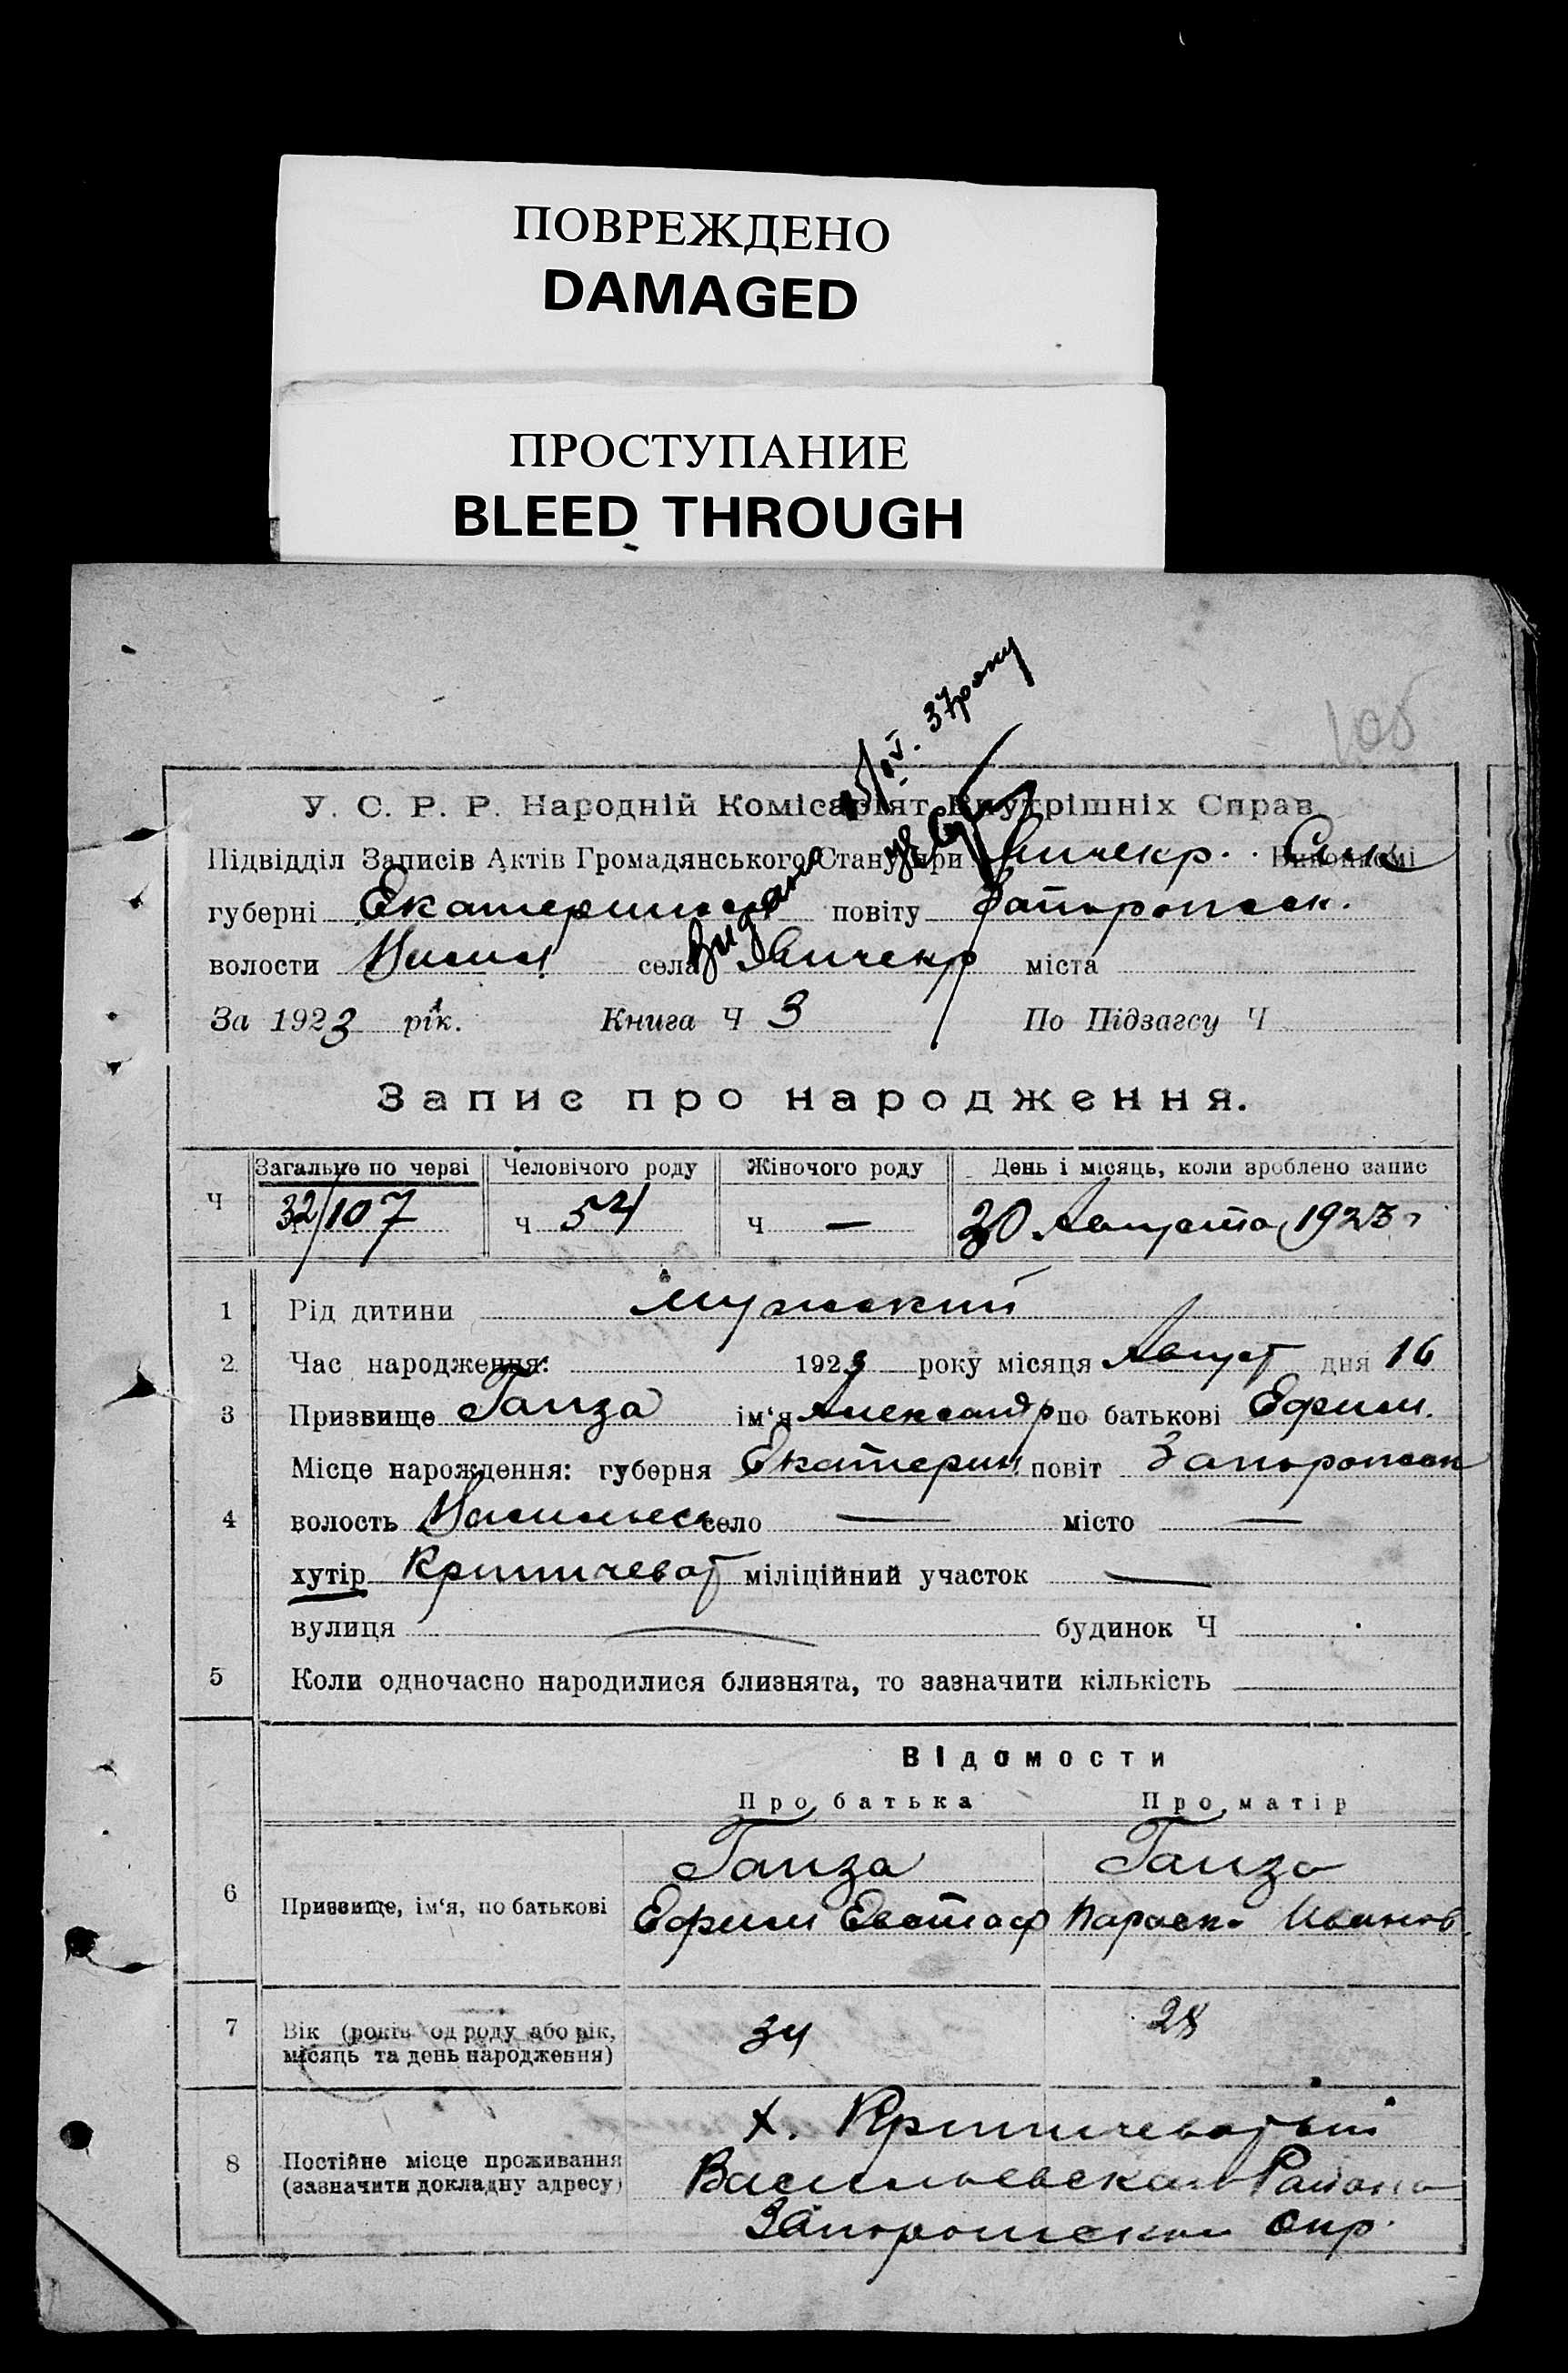 ПОВРЕЖДЕНО
DAMAGED
ПРОСТУПАНИЕ
BLEED THROUGH
105
Видано IV. 37 року
У. С. Р. Р. Народній Комісаріят Внутрішніх Справ
Підвідділ Записів Актів Громадянського Стану при Виконкомі
губерні Екатерин повіту Запорожск.
волости села міста
За 1923 рік. Книга Ч 3 По Підзагсу Ч
Запис про народження.
Загальне по черзі Человічого роду Жіночого роду День і місяць, коли зроблено запис
Ч 32/107 Ч 54 Ч — 30 Августа 1923 г
1 Рід дитини мужский
2 Час народження: 1923 року місяця Август дня 16
3 Призвище Ганза ім'я Александр по батькові Ефим.
Місце нарождення: губерня Екатерин повіт Запорожск
4 волость село — місто —
хутір Критичеват міліційний участок —
вулиця — будинок Ч
5 Коли одночасно народилися близнята, то зазначити кількість
Відомости
Про батька Про матір
Ганза Ганза
6 Призвище, ім'я, по батькові Ефим Евстаф Параск. Иванов.
7 Вік (років од роду або рік, 34 28
місяць та день народження)
х.
8 Постійне місце проживання
(зазначити докладну адресу) Васильевского Района
Запорожской окр.